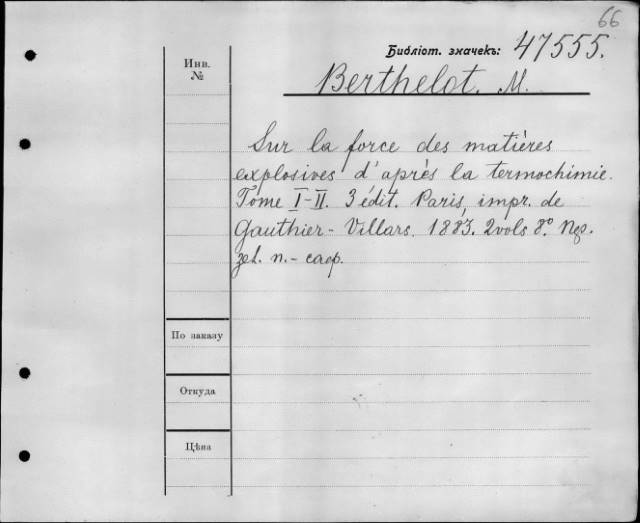 66
Библіот. значекъ: 47555.
Инв.
№
Berthelot. M.
Sur la force des matières
explosives d'après la termochimie.
Tome I-II. 3 édit. Paris, impr. de
Gauthier-Villars. 1883. 2vols 8°
По заказу
Откуда
Цѣна